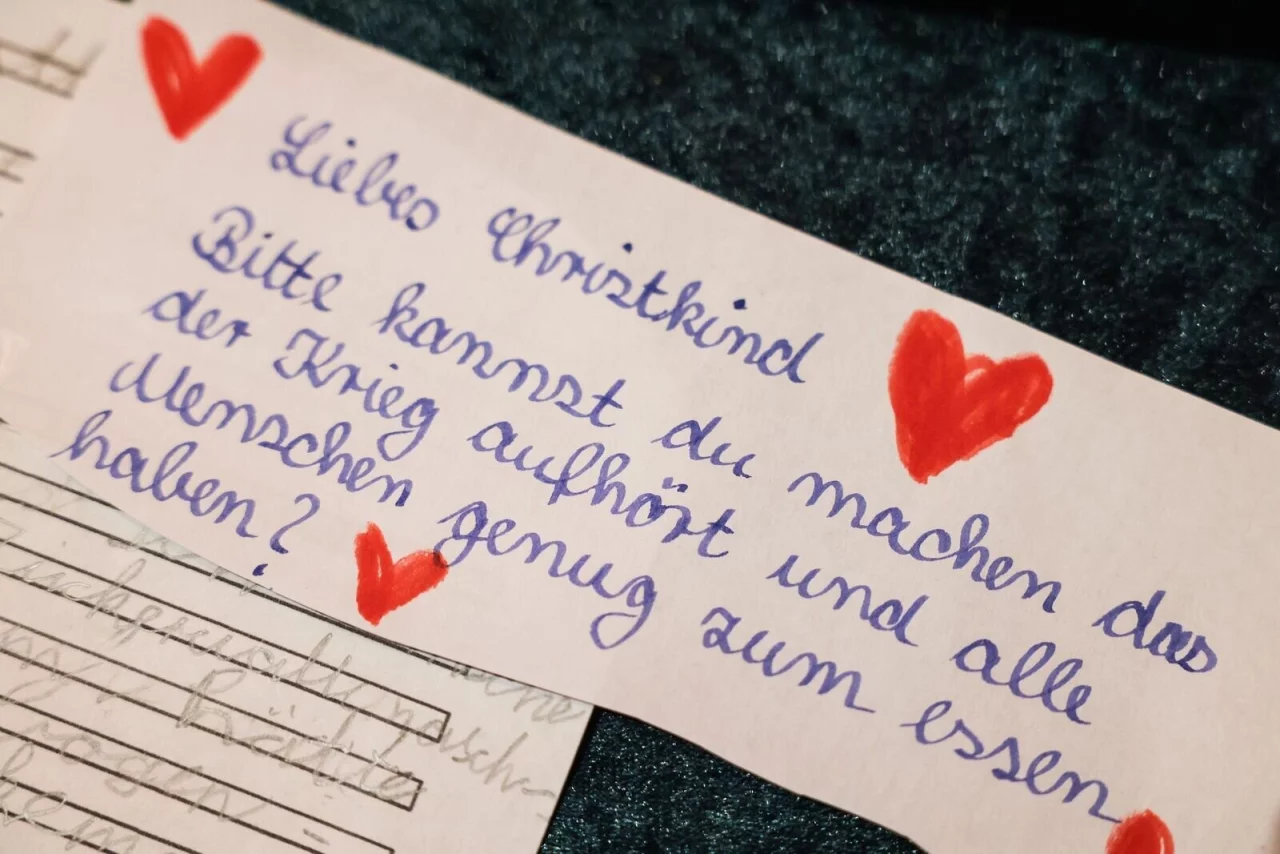 Liebes Christkind
Bitte kannst du machen das
der Krieg aufhört und alle
Menschen genug zum essen
haben?